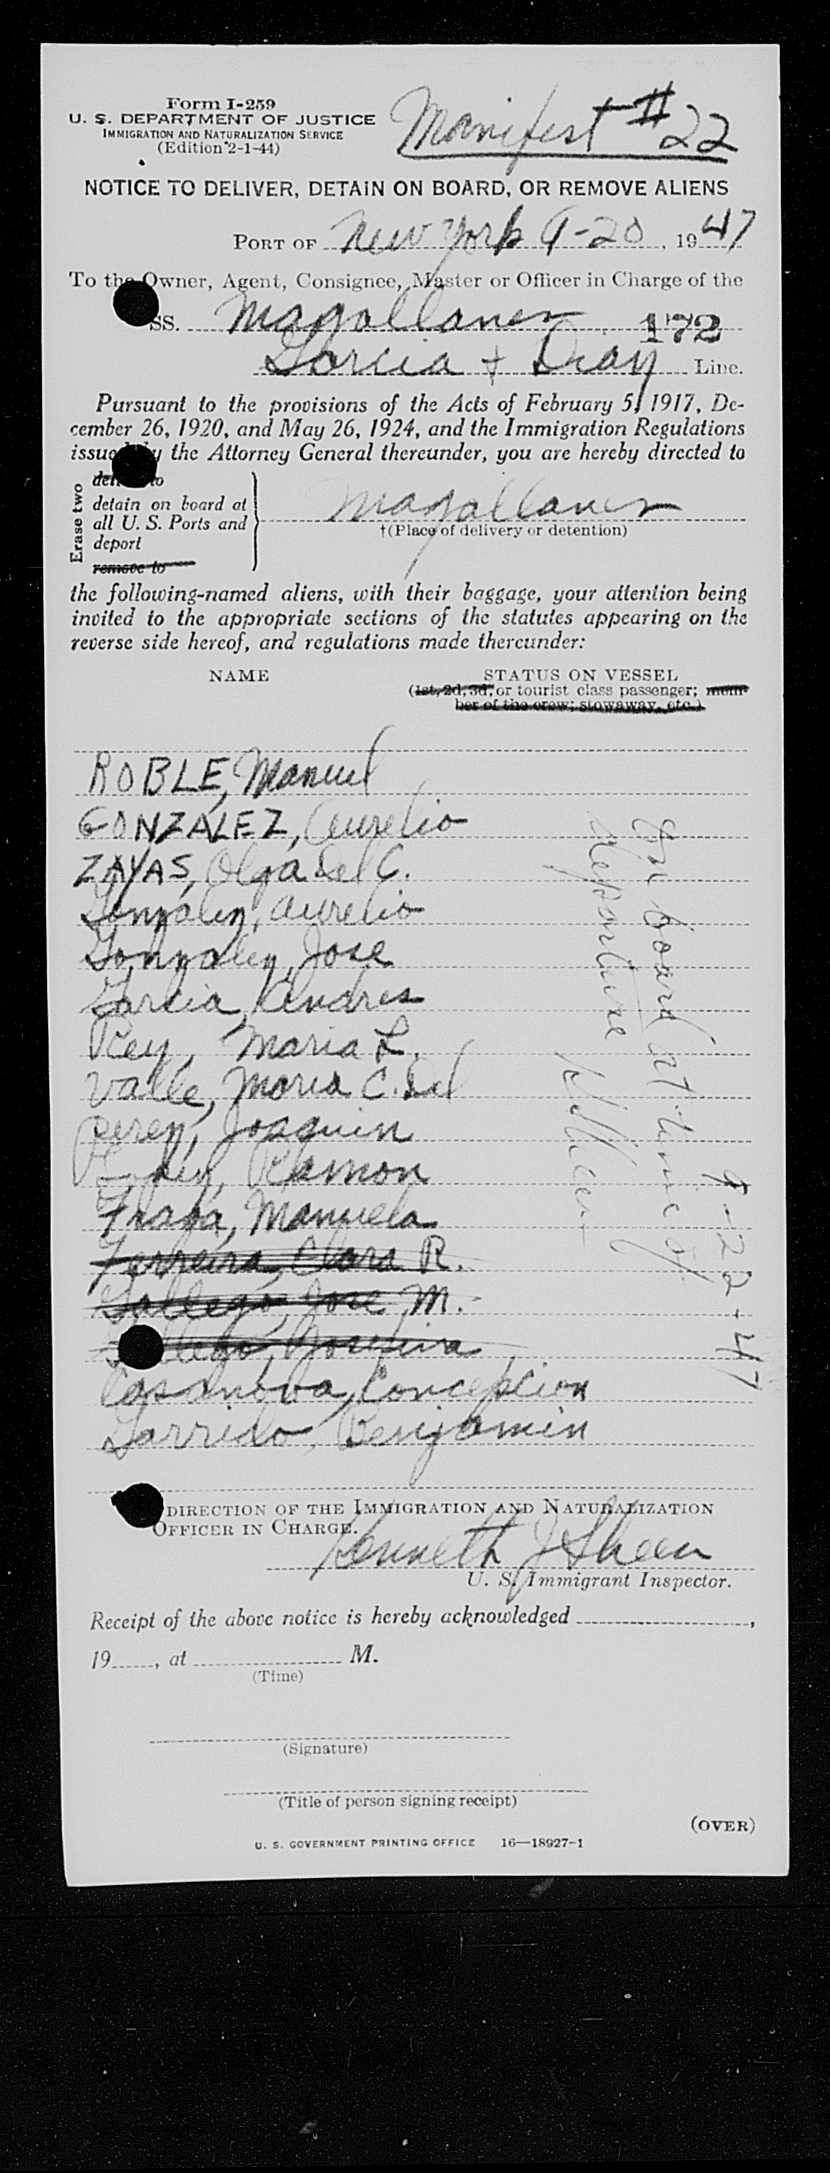 Form I-259
U. S. DEPARTMENT OF JUSTICE
IMMIGRATION AND NATURALIZATION SERVICE
(Edition 2-1-44)
Manifest # 22
NOTICE TO DELIVER, DETAIN ON BOARD, OR REMOVE ALIENS
PORT OF New York 9-20, 1947
To the Owner, Agent, Consignee, Master or Officer in Charge of the
SS. Magallanes 172
Garcia + Diaz Line.
Pursuant to the provisions of the Acts of February 5, 1917, De-
cember 26, 1920, and May 26, 1924, and the Immigration Regulations
issued by the Attorney General thereunder, you are hereby directed to
Erase two
deliver to
detain on board at
all U. S. Ports and
deport
remove to
Magallanes
†(Place of delivery or detention)
the following-named aliens, with their baggage, your attention being
invited to the appropriate sections of the statutes appearing on the
reverse side hereof, and regulations made thereunder:
NAME STATUS ON VESSEL
(1st, 2d, 3d, or tourist class passenger; mem-
ber of the crew; stowaway, etc.)
ROBLE, Manuel
GONZALEZ, Aurelio
ZAYAS, Olga Del C.
Gonzalez, Aurelio
Gonzalez, Jose
Garcia, Andres
Rey, Maria L.
Valle, Maria C. Del
Perez, Joaquin
Ramon
Fraga, Manuela
Ferreira, Clara R.
Gallego, Jose M.
Gallego, Josefina
Casanova, Concepcion
Garrido, Benjamin
On board at time of
departure 9-22-47
KJSheen
DIRECTION OF THE IMMIGRATION AND NATURALIZATION
OFFICER IN CHARGE.
Kenneth J Sheen
U. S. Immigrant Inspector.
Receipt of the above notice is hereby acknowledged ,
19 , at M.
(Time)
(Signature)
(Title of person signing receipt)
(OVER)
U. S. GOVERNMENT PRINTING OFFICE 16—18927-1